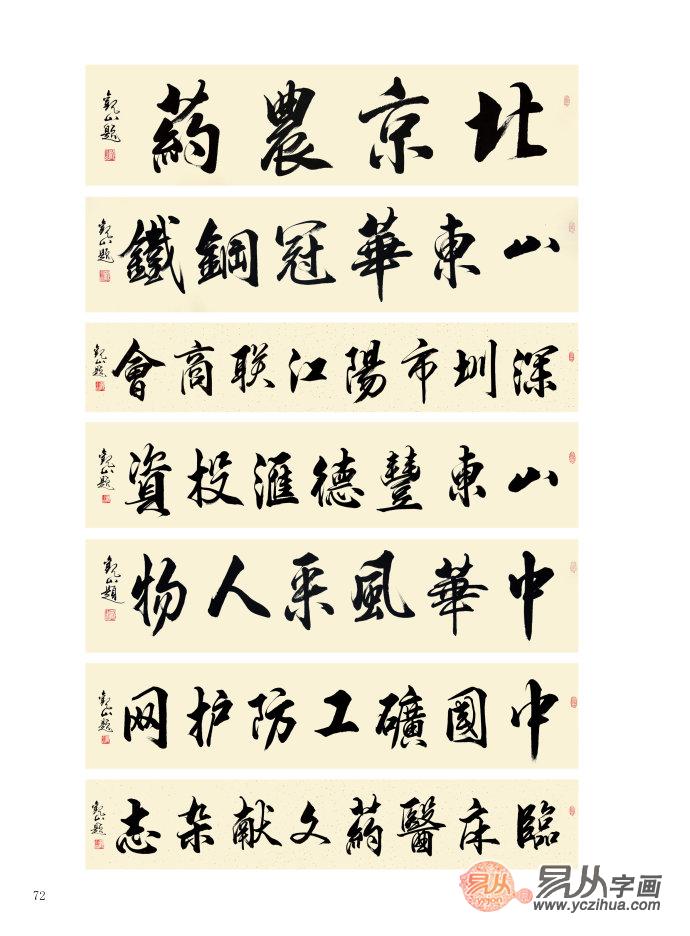 北京農葯 觀山題
山東華冠鋼鐵 觀山題
深圳市陽江联商會 觀山題
山東豐德滙投資 觀山題
中華風采人物 觀山題
中國礦工防护网 觀山題
臨床醫葯文献杂志 觀山題
72
易从
易从字画
www.yczihua.com